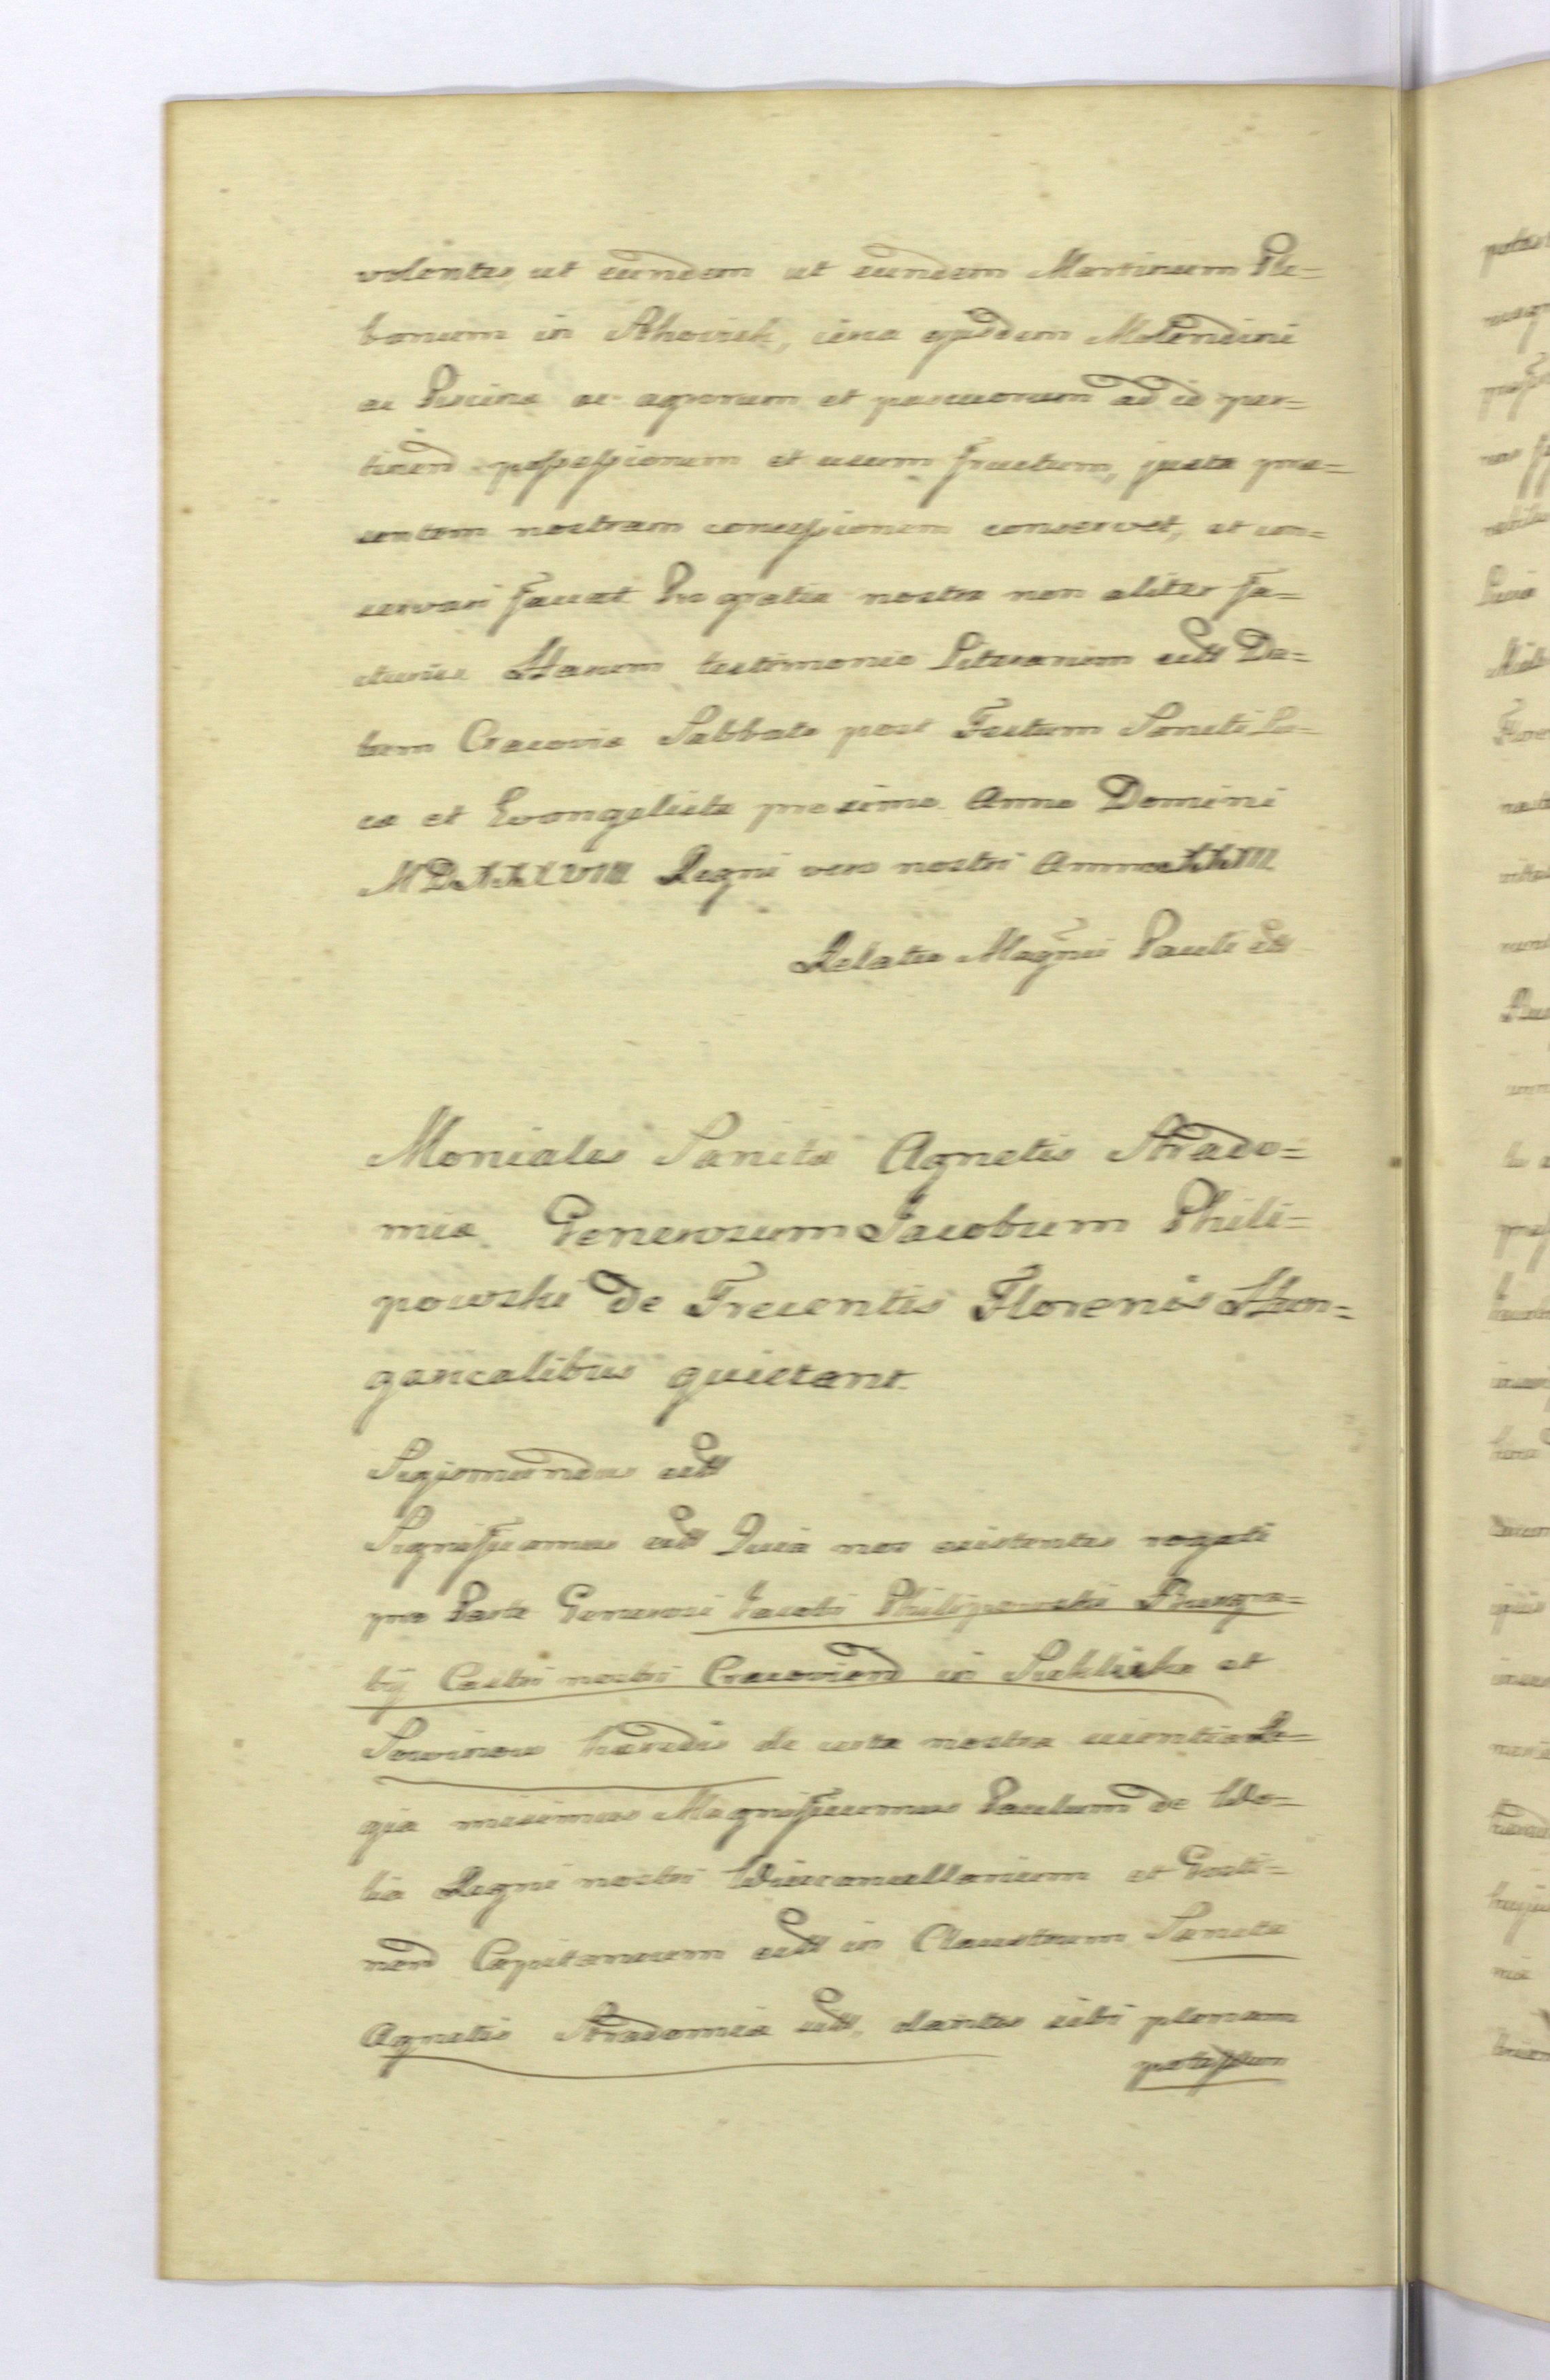 volentes, ut eundem ut eundem Martinum Ple=
banum in Skowiek, circa ejusdem Molendini
ac Piscina ac agrorum et pascuorum ad id per=
tinend possessionem et usum fructum, juxta prae=
sentem nostram concessionem conservet, et con=
servari faciat Pro gratia nostra non aliter fa=
cturus Harum testimonio Literarum etc Da=
tum Cracovia Sabbato post Festum Sancti Lu=
ca et Evangelista proximo Anno Domini
MDXXXVIII Regni vero nostri Anno XXXIII
Relatio Magnci Pauli etc
Moniales Sancta Agnetis Strado=
mia Generosum Jacobum Phili=
powski de Trecentis Florenis Hun=
garicalibus quietant.
Sigismundus etc
Significamus etc Quia nos existentes rogati
pro Parte Generosi Jacobi Philipowski Burgra=
bij Castri nostri Craceviend in et
haeredis de certa nostra scientia Re=
gia misimus Magnificumus Paulum de Wo=
lia Regni nostri Vicecancellarium et Gosti=
nend Capitaneum etc in Claustrum Sancta
Agnetis Stradomia etc, dantes sibi plenam
potestatem